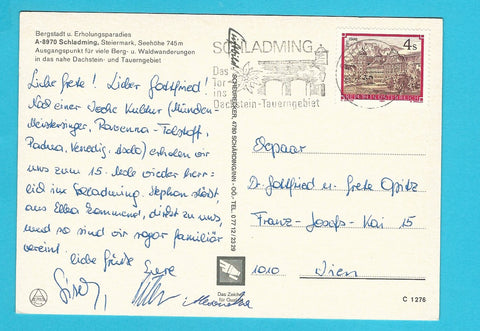 Bergstadt u. Erholungsparadies
A-8970 Schladming, Steiermark, Seehöhe 745 m
Ausgangspunkt für viele Berg- u. Waldwanderungen
in das nahe Dachstein- und Tauerngebiet
Liebe Grete! Lieber Gottfried!
Nach einer Woche Kultur (München-
Meistersinger, Ravenna-Falstaff,
Padua, Venedig, Asolo) erholen wir
uns zum 15. Male wieder herr-
lich in Schladming. Stephan stößt,
aus Elba kommend, direkt zu uns,
und so sind wir sogar familiär
vereint. Liebe Grüße Eure
SCHLADMING
Das
Tor
ins
Dachstein-Tauerngebiet
4s
REPUBLIK ÖSTERREICH
4780 SCHÄRDING/INN - OÖ. TEL. 0 77 12 / 23 29
Ehepaar
Dr. Gottfried u. Grete Opitz
Franz-Josefs-Kai 15
1010 Wien
Das Zeichen
für Qualität
C 1276